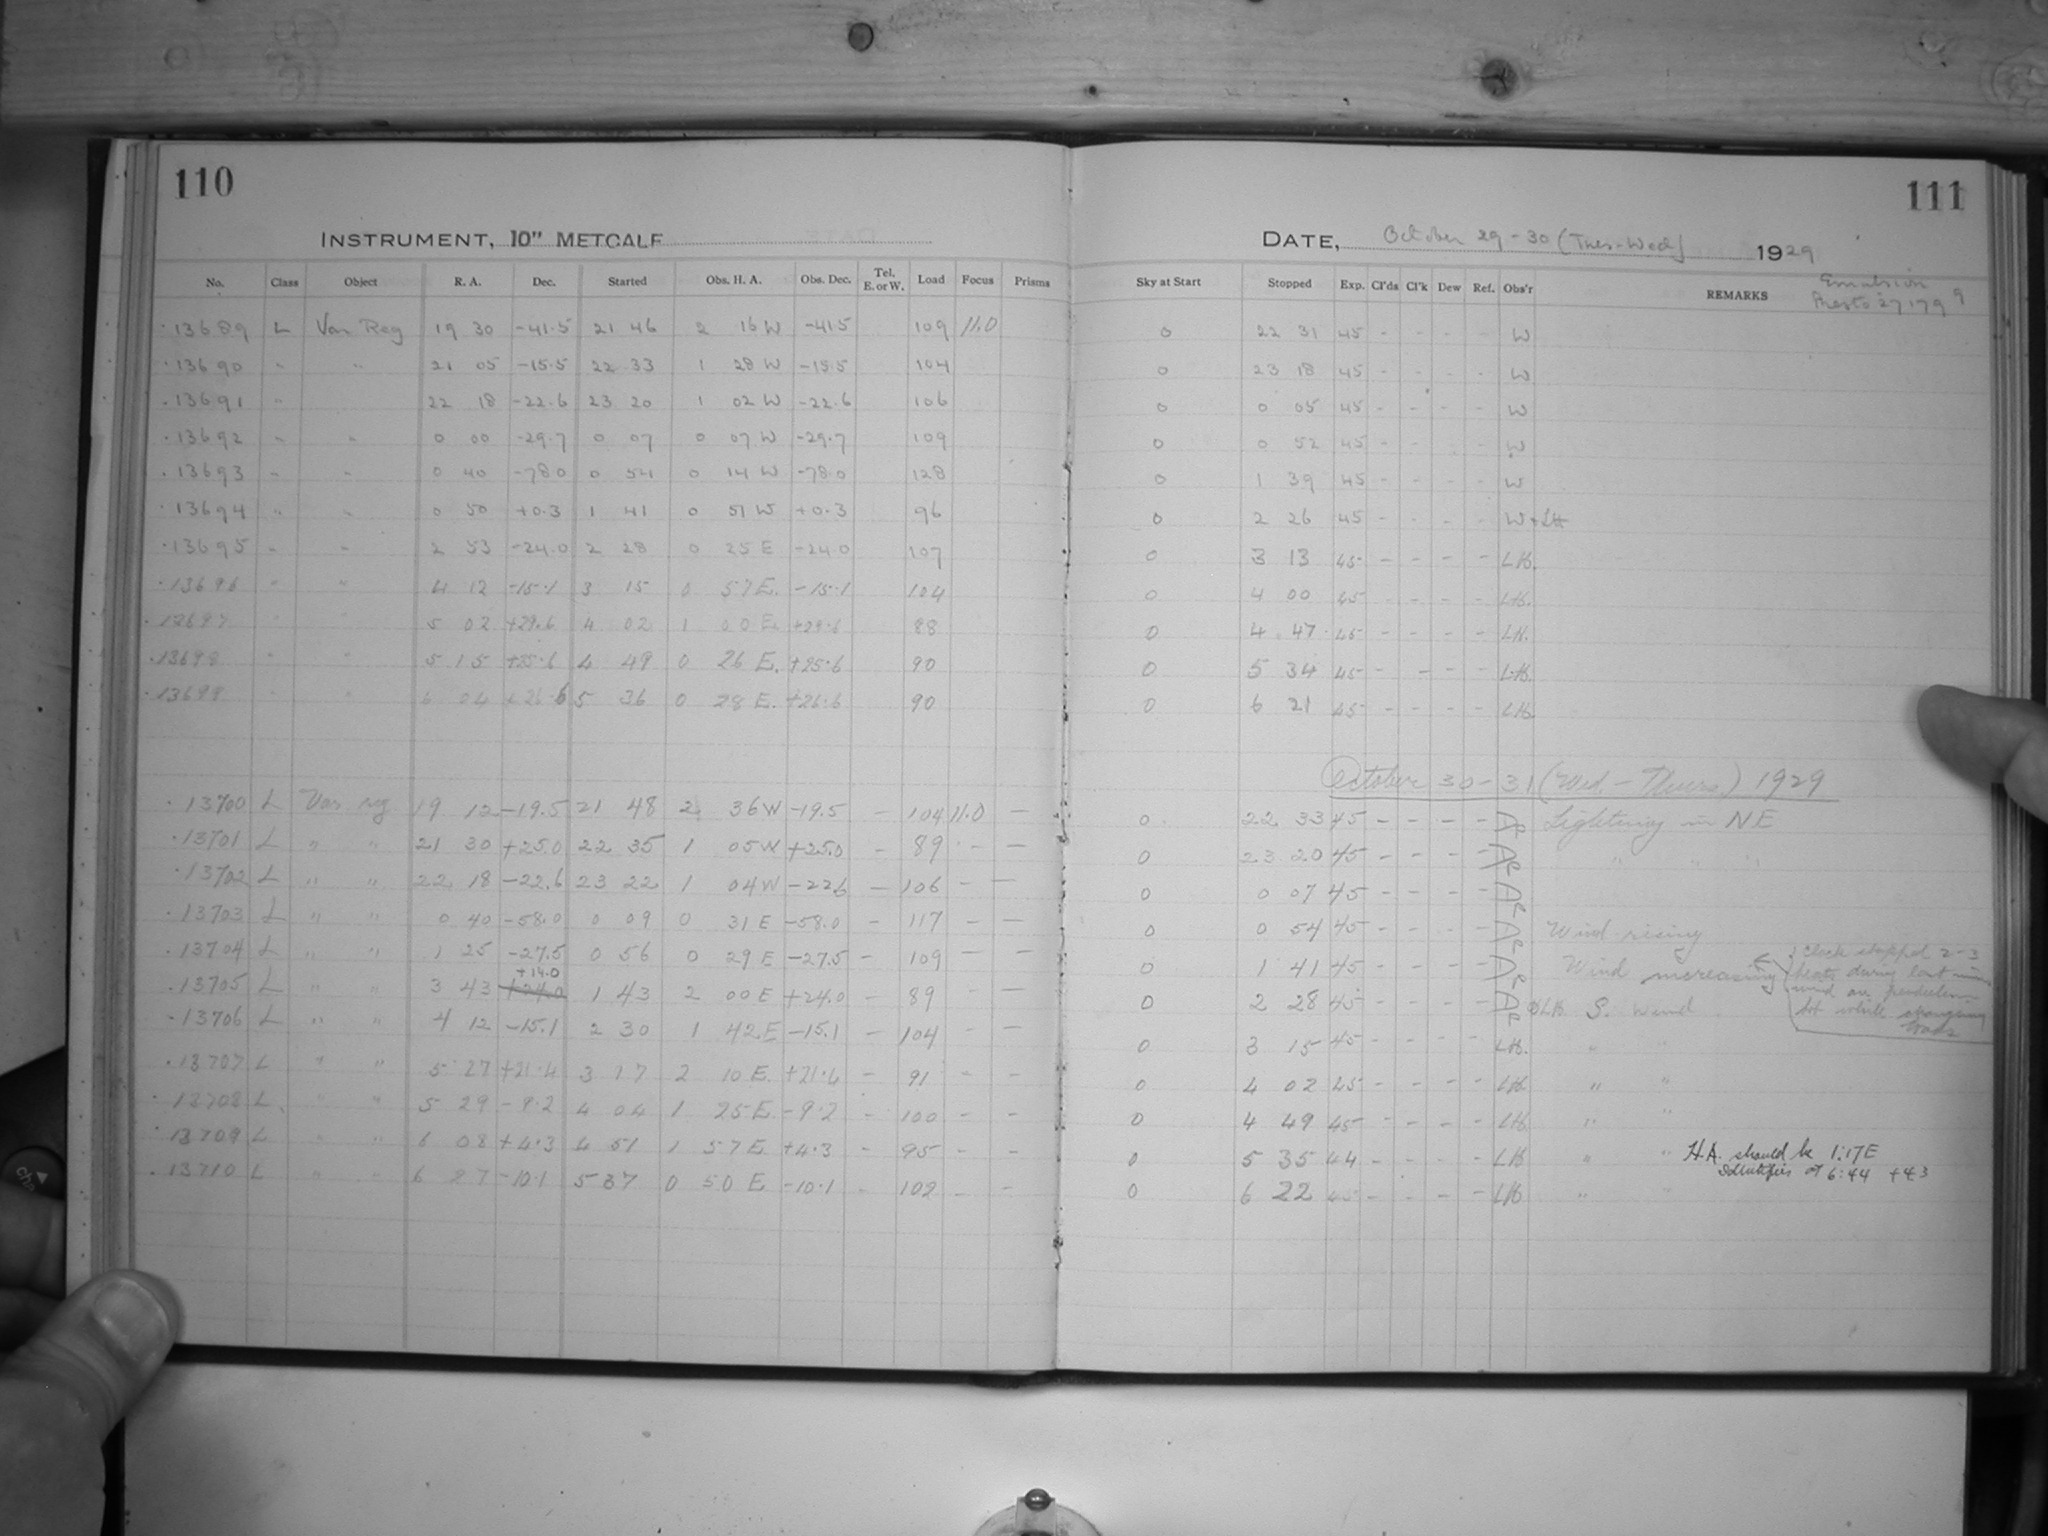 110
INSTRUMENT, 10" METCALF
No. Class Object R. A. Dec. Started Obs. H. A. Obs. Dec. Tel. E. or W. Load Focus Prisms
13689 L Var Reg 19 30 -41.5 21 46 2 16 W -41.5 109 11.0
13690 " " 21 05 -15.5 22 33 1 28 W -15.5 104
13691 " 22 18 -22.6 23 20 1 02 W -22.6 106
13692 " " 0 00 -29.7 0 07 0 07 W -29.7 109
13693 " " 0 40 -78.0 0 54 0 14 W -78.0 128
13694 " " 0 50 +0.3 1 41 0 51 W +0.3 96
13695 " " 2 53 -24.0 2 28 0 25 E -24.0 107
13696 " " 4 12 -15.1 3 15 0 57 E. -15.1 104
13697 " " 5 02 +29.6 4 02 1 00 E. +29.6 88
13698 " " 5 15 +25.6 4 49 0 26 E. +25.6 90
13699 " " 6 04 +26.6 5 36 0 28 E. +26.6 90
13700 L Var. reg 19 12 -19.5 21 48 2 36 W -19.5 - 104 11.0 -
13701 L " " 21 30 +25.0 22 35 1 05 W +25.0 - 89 - -
13702 L " " 22 18 -22.6 23 22 1 04 W -22.6 - 106 - -
13703 L " " 0 40 -58.0 0 09 0 31 E -58.0 - 117 - -
13704 L " " 1 25 -27.5 0 56 0 29 E -27.5 - 109 - -
+14.0
13705 L " " 3 43 +24.0 1 43 2 00 E +24.0 - 89 - -
13706 L " " 4 12 -15.1 2 30 1 42 E -15.1 - 104 - -
13707 L " " 5 27 +21.4 3 17 2 10 E. +21.4 - 91 - -
13708 L " " 5 29 -9.2 4 04 1 25 E -9.2 - 100 - -
13709 L " " 6 08 +4.3 4 51 1 57 E +4.3 - 95 - -
13710 L " " 6 27 -10.1 5 37 0 50 E -10.1 - 102 - -
111
DATE, October 29-30 (Tues-Wed) 1929
Emulsion
Presto 27179
Sky at Start Stopped Exp. Cl'ds Cl'k Dew Ref. Obs'r REMARKS
0 22 31 45 - - - - W
0 23 18 45 - - - - W
0 0 05 45 - - - - W
0 0 52 45 - - - - W
0 1 39 45 - - - - W
0 2 26 45 - - - - W + LH
0 3 13 45 - - - - LH.
0 4 00 45 - - - - LH.
0 4 47 45 - - - - LH.
0 5 34 45 - - - - LH.
0 6 21 45 - - - - LH.
October 30-31 (Wed - Thurs) 1929
0 22 33 45 - - - - AR Lightning in NE
0 23 20 45 - - - - AR " " "
0 0 07 45 - - - - AR
0 0 54 45 - - - - AR Wind rising
0 1 41 45 - - - - AR Wind increasing
Clock stopped 2-3 beats during last
wind on pendulum
but while changing
0 2 28 45 - - - - AR LH. S. wind
0 3 15 45 - - - - LH. " "
0 4 02 45 - - - - LH. " "
0 4 49 45 - - - - LH. " "
0 5 35 44 - - - - LH " " H.A. should be 1:17 E
Identifies at 6:44 +4.3
0 6 22 45 - - - - LH " "